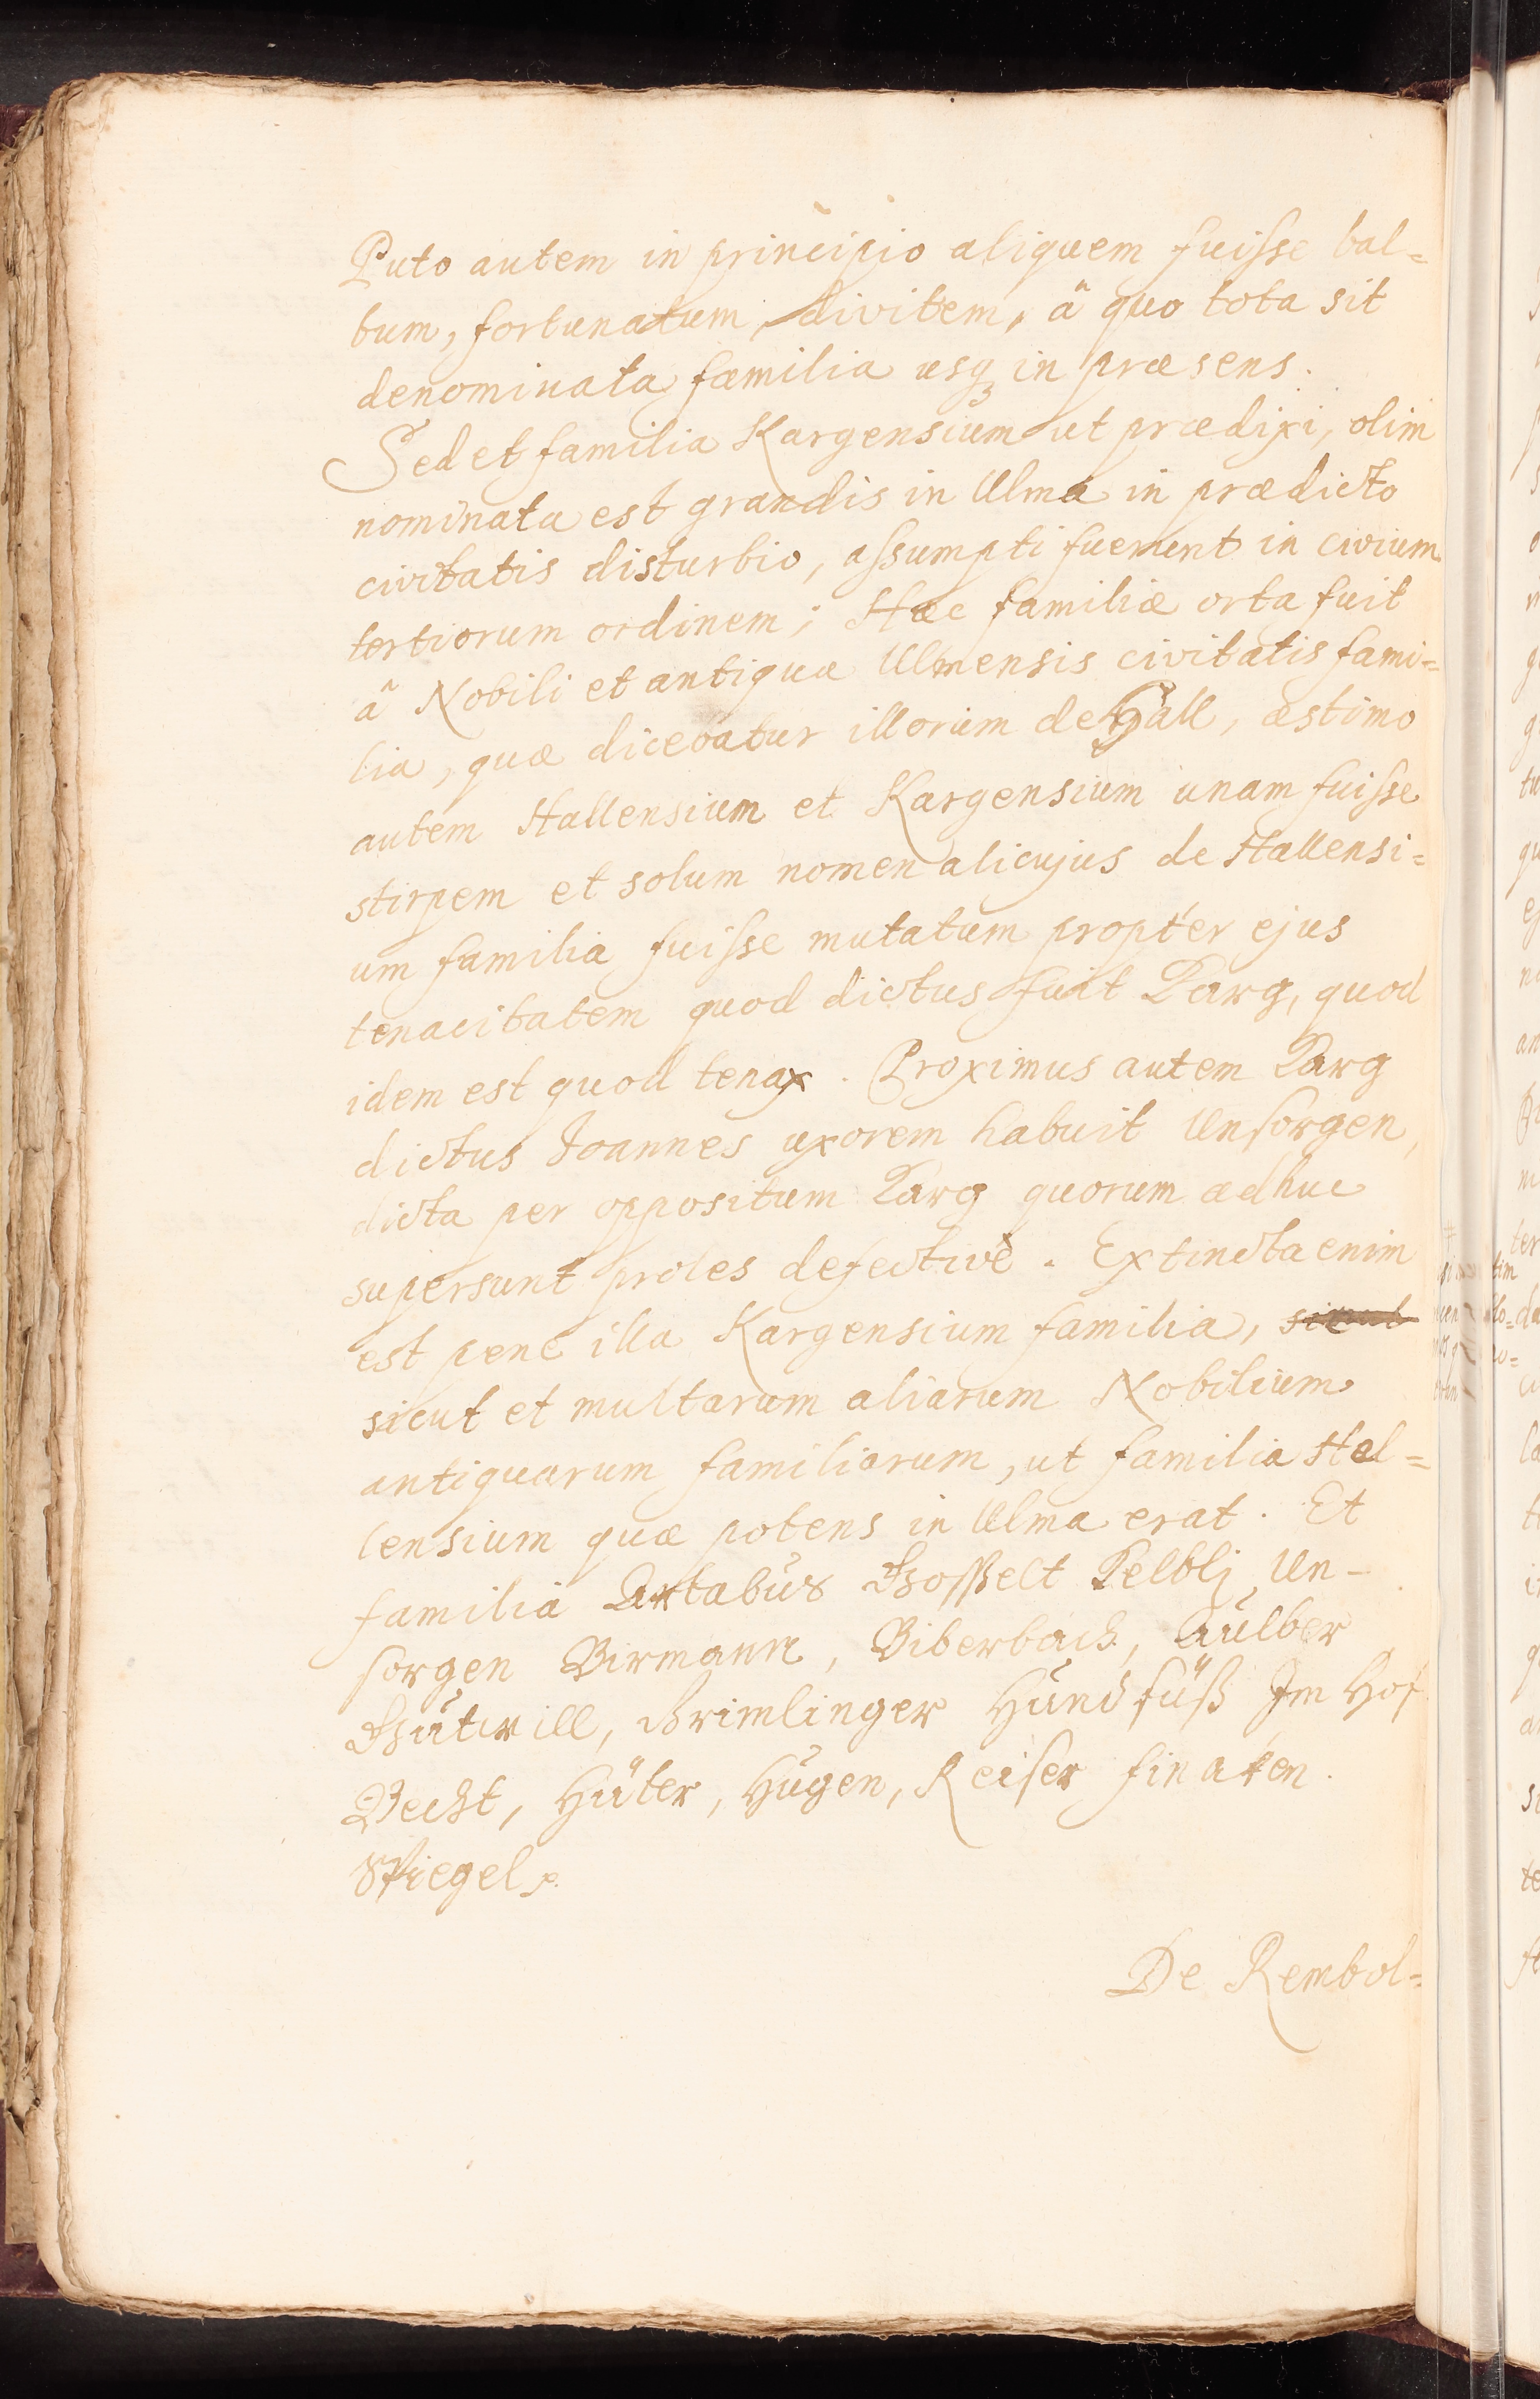 Puto autem in principio aliquem fuisse bal=
bum, fortunatum, divitem, â quo tota sit
denominata familia usq in præsens.
Sed et familia Kargensium ut prædixi, olim
nominata est grandis in Ulma in prædicto
civitatis disturbio, assumpti fuerunt in civium
tertiorum ordinem; Hæc familiæ orta fuit
â Nobili et antiqua Ulmensis civitatis fami=
lia, quæ dicebatur illorum de Hall, æstimo
autem Hallensium et Kargensium unam fuisse
stirpem et solum nomen alicujus de Hallensi=
um familia fuisse mutatum propter ejus
tenacitatem quod dictus fuit Karg, quod
idem est quod tenax. Proximus autem Karg
dictus Joannes uxorem habuit Unsorgen,
dicta per oppositum Karg quorum adhuc
supersunt proles defectivè. Extincta enim
est pene illa Kargensium familia, sicut
sicut et multarum aliarum Nobilium
antiquarum familiarum, ut familia Hal=
lensium quæ potens in Ulma erat. Et
familia Artabus Gosselt Kelblj Un-
sorgen Birmann, Biberbach, Aulber
Gutwill, Grimlinger Hundfüß Im Hof
Becht, Hüter, Hugen, Reiser finaten.
Spiegel
De Rembol=